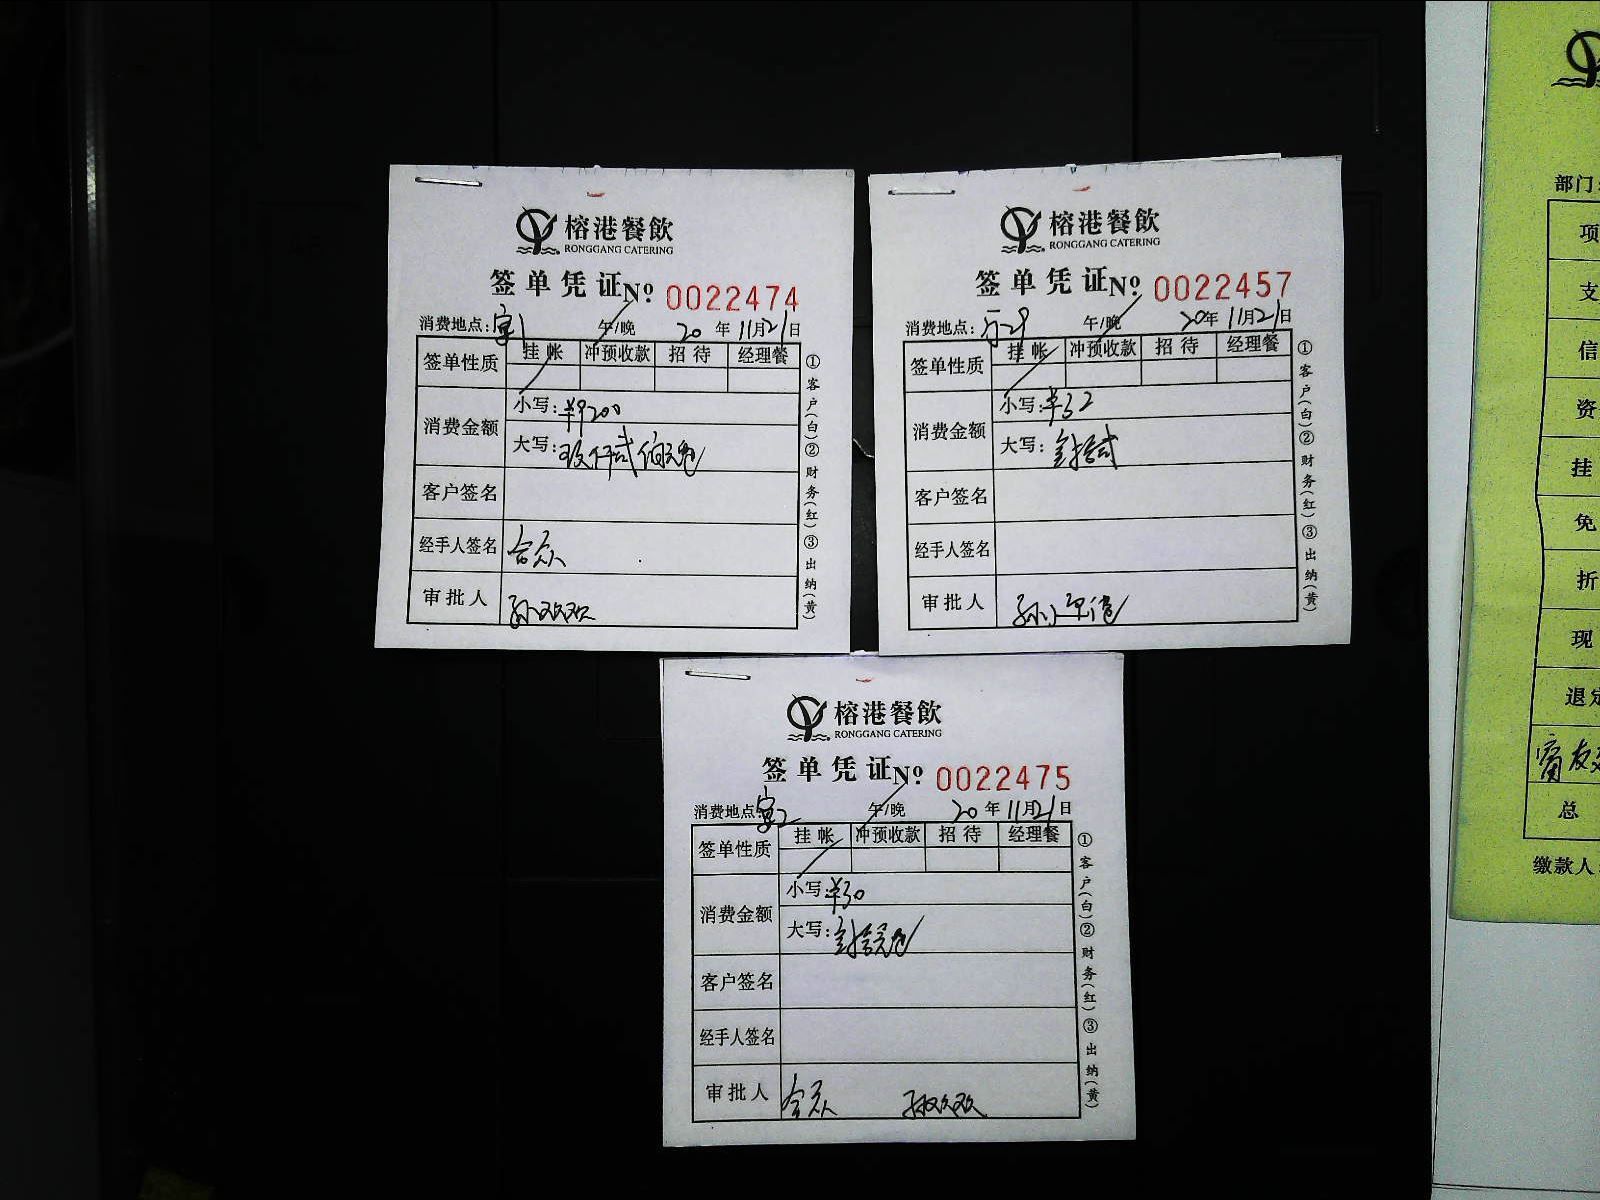 榕港餐飲
RONGGANG CATERING
签单凭证No 0022474
消费地点:宴1 午/晚 20年11月21日
签单性质 挂帐 冲预收款 招待 经理餐
消费金额 小写:¥9200
大写:玖仟贰佰元
客户签名
经手人签名 合众
审批人 孙双双
①客户(白)②财务(红)③出纳(黄)
榕港餐飲
RONGGANG CATERING
签单凭证No 0022457
消费地点: 午/晚 20年11月21日
签单性质 挂帐 冲预收款 招待 经理餐
消费金额 小写:¥32
大写:叁拾贰
客户签名
经手人签名
审批人
①客户(白)②财务(红)③出纳(黄)
榕港餐飲
RONGGANG CATERING
签单凭证No 0022475
消费地点:宴2 午/晚 20年11月21日
签单性质 挂帐 冲预收款 招待 经理餐
消费金额 小写:¥30
大写:叁拾元
客户签名
经手人签名
审批人 合众 孙双双
①客户(白)②财务(红)③出纳(黄)
部门:
项
支
信
资
挂
免
折
现
退定
总
缴款人: